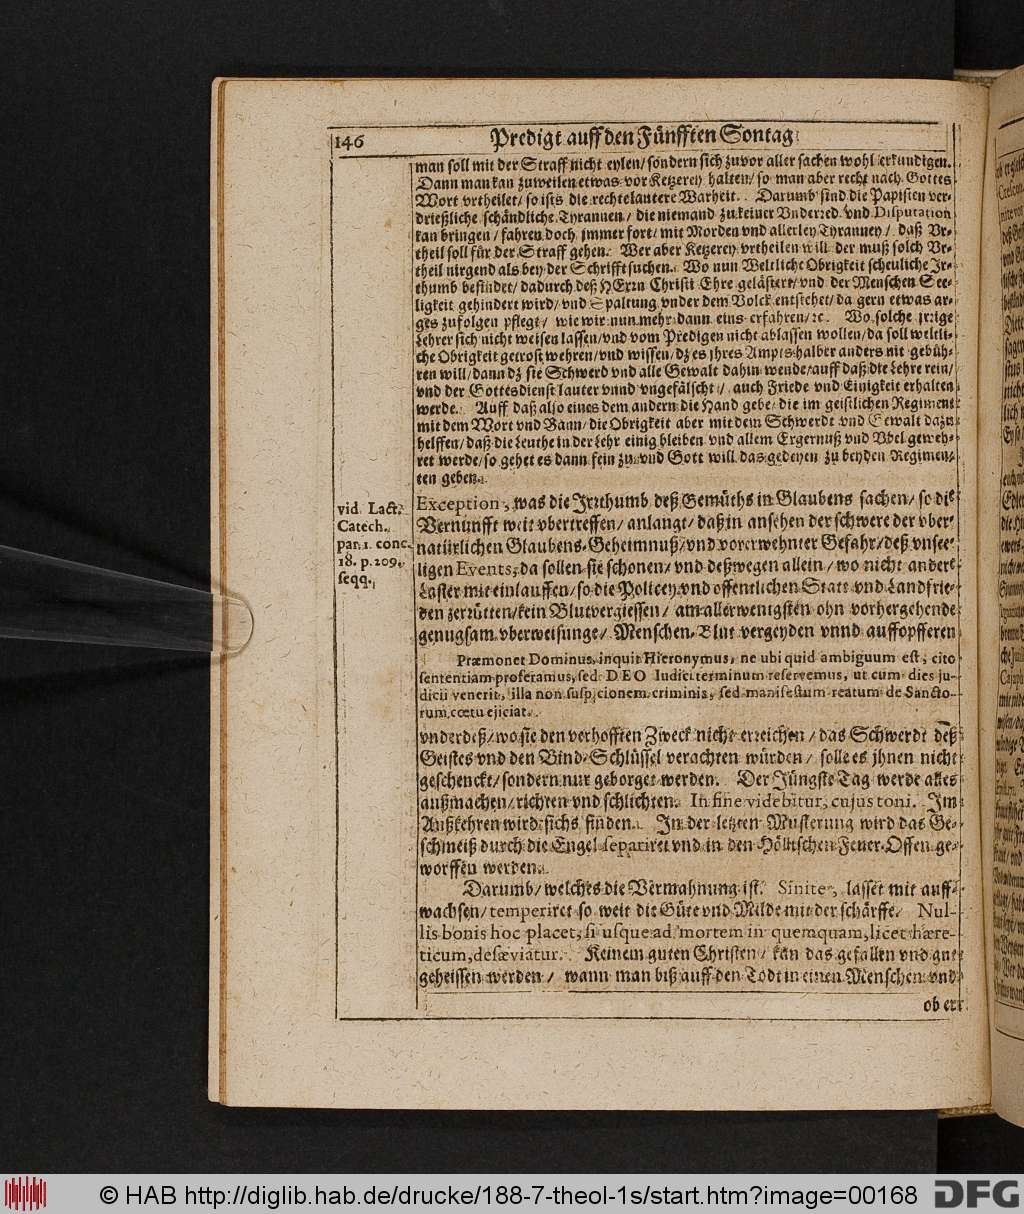 146
Predigt auff den Fünfften Sontag
man soll mit der Straff nicht eylen/ sondern sich zuvor aller sachen wohl erkundigen.
Dann man kan zuweilen etwas vor Ketzerey halten/ so man aber recht nach Gottes
Wort vrtheilet/ so ists die rechte lautere Warheit. Darumb sind die Papisten ver-
drießliche schändliche Tyrannen/ die niemand zu keiner Vnderred vnd Disputation
kan bringen/ fahren doch immer fort/ mit Morden vnd allerley Tyranney/ daß Vr-
theil soll für der Straff gehen. Wer aber Ketzerey vrtheilen will der muß solch Vr-
theil nirgend als bey der Schrifft suchen. Wo nun Weltliche Obrigkeit scheuliche Jr-
thumb befindet/ dadurch deß HErrn Christi Ehre gelästert/ vnd der Menschen See-
ligkeit gehindert wird/ vnd Spaltung vnder dem Volck entstehet/ da gern etwas ar-
ges zufolgen pflegt/ wie wir nun mehr dann eins erfahren/ ꝛc. Wo solche jrrige
Lehrer sich nicht weisen lassen/ vnd vom Predigen nicht ablassen wollen/ da soll weltli-
che Obrigkeit getrost wehren/ vnd wissen/ dz es jhres Ampts halber anders nit gebüh-
ren will/ dann dz sie Schwerd vnd alle Gewalt dahin wende/ auff daß die Lehre rein/
vnd der Gottesdienst lauter vnnd vngefälscht/ auch Friede vnd Einigkeit erhalten
werde. Auff daß also eines dem andern die Hand gebe/ die im geistlichen Regiment
mit dem Wort vnd Bann/ die Obrigkeit aber mit dem Schwerdt vnd Gewalt dazu
helffen/ daß die Leuthe in der Lehr einig bleiben vnd allem Ergernuß vnd Vbel geweh-
ret werde/ so gehet es dann fein zu/ vnd Gott will das gedeyen zu beyden Regimen-
ten geben.
vid. Lact.
Catech.
par. 1. conc.
18. p. 209.
seqq.
Exception, was die Jrrthumb deß Gemüths in Glaubens sachen/ so die
Vernunfft weit vbertreffen/ anlangt/ daß in ansehen der schwere der vber-
natürlichen Glaubens-Geheimnuß/ vnd vorerwehnter Gefahr/ deß vnsee-
ligen Events, da sollen sie schonen/ vnd deßwegen allein/ wo nicht andere
Laster mit einlauffen/ so die Policey vnd offentlichen Statt vnd Landfrie-
den zerrütten/ kein Blutvergiessen/ am allerwenigsten ohn vorhergehende
genugsam vberweisunge/ Menschen-Blut vergeyden vnnd auffopfferen
Præmonet Dominus, inquit Hieronymus, ne ubi quid ambiguum est, cito
sententiam proferamus, sed DEO Judici terminum reservemus, ut cum dies ju-
dicii venerit, illa non suspicionem criminis, sed manifestum reatum de Sancto-
rum cœtu ejiciat.
vnderdeß/ wo sie den verhofften Zweck nicht erreichen/ das Schwerdt deß
Geistes vnd den Bind-Schlüssel verachten würden/ solle es jhnen nicht
geschenckt/ sondern nur geborget werden. Der Jüngste Tag werde alles
außmachen/ richten vnd schlichten. In fine videbitur, cujus toni. Jm
Außkehren wird sichs finden. Jn der letzten Musterung wird das Ge-
schmeiß durch die Engel separiret vnd in den Höllischen Feuer-Offen ge-
worffen werden.
Darumb/ welches die Vermahnung ist. Sinite, lasset mit auff-
wachsen/ temperiret so weit die Güte vnd Milde mit der schärffe. Nul-
lis bonis hoc placet, si usque ad mortem in quemquam, licet hære-
ticum, desæviatur. Keinem guten Christen/ kan das gefallen vnd gut
geheissen werden/ wann man biß auff den Todt in einen Menschen vnd
ob err
© HAB http://diglib.hab.de/drucke/188-7-theol-1s/start.htm?image=00168
DFG